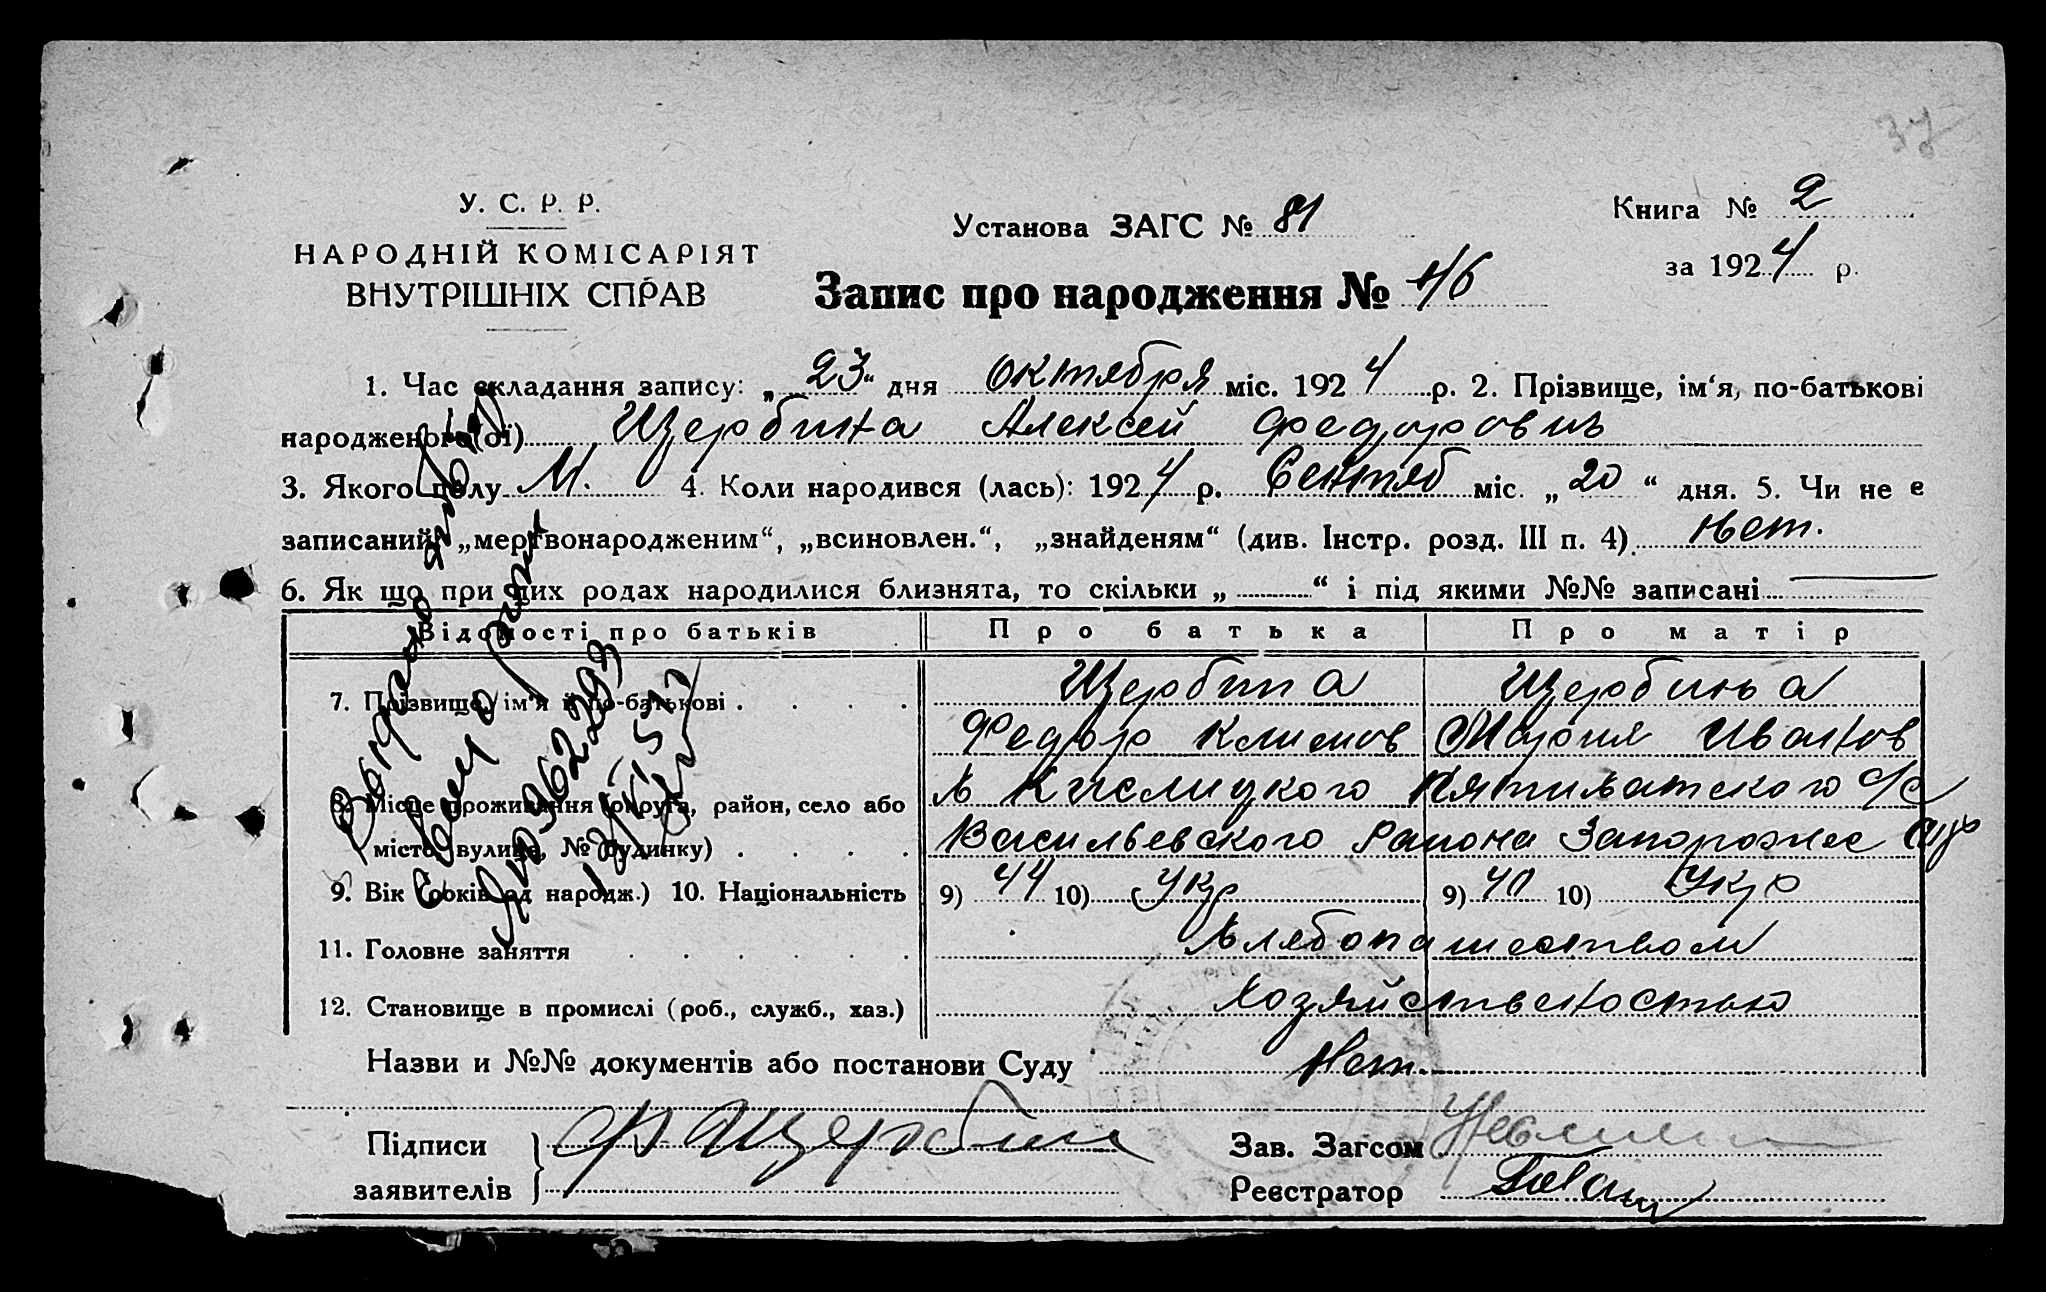 37
У. С. Р. Р.
НАРОДНІЙ КОМІСАРІЯТ
ВНУТРІШНІХ СПРАВ
Установа ЗАГС № 81
Книга № 2
за 1924 р.
Запис про народження № 46
1. Час складання запису: „23“ дня Октября міс. 1924 р. 2. Прізвище, ім‘я, по-батькові
народженого(ої) Щербина Алексей Федорович
3. Якого полу М. 4. Коли народився (лась): 1924 р. Сентяб міс. „20“ дня. 5. Чи не є
записаний „мертвонародженим“, „всиновлен.“, „знайденям“ (див. Інстр. розд. III п. 4) Нет.
6. Як що при цих родах народилися близнята, то скільки „ “ і під якими №№ записані
Відомості про батьків Про батька Про матір
7. Прізвище, ім‘я й по-батькові Щербина Щербина
Федор Климов Мария Иванов
8. Місце проживання (округа, район, село або Х Кислицкого с/с
місто, вулиця, № будинку) Васильевского Района Запорожск
9. Вік (років од народж.) 10. Національність 9) 44 10) Укр 9) 40 10) Укр
11. Головне заняття Хлебопашеством
12. Становище в промислі (роб., служб., хаз.) Хозяйственостью
Назви и №№ документів або постанови Суду Нет.
Підписи Ф Щербин Зав. Загсом
заявителів Реєстратор
Выдано